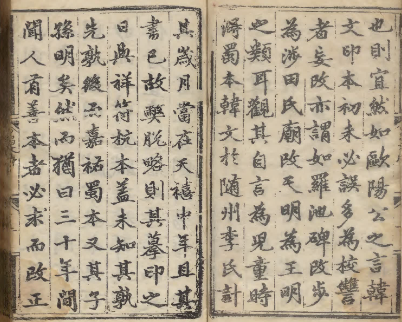 也則宜然如歐陽公之言韓
文印本初未必誤多為校讐
者妄改亦謂如羅池碑改步
為涉田氏廟改天明為王明
之類耳觀其自言為兒童時
得蜀本韓文於隨州李氏計
其歲月當在天禧中年且其
書已故弊脫略則其摹印之
日與祥符杭本蓋未知其孰
先孰後而嘉祐蜀本又其子
孫明矣然而猶曰三十年間
聞人有善本者必求而改正